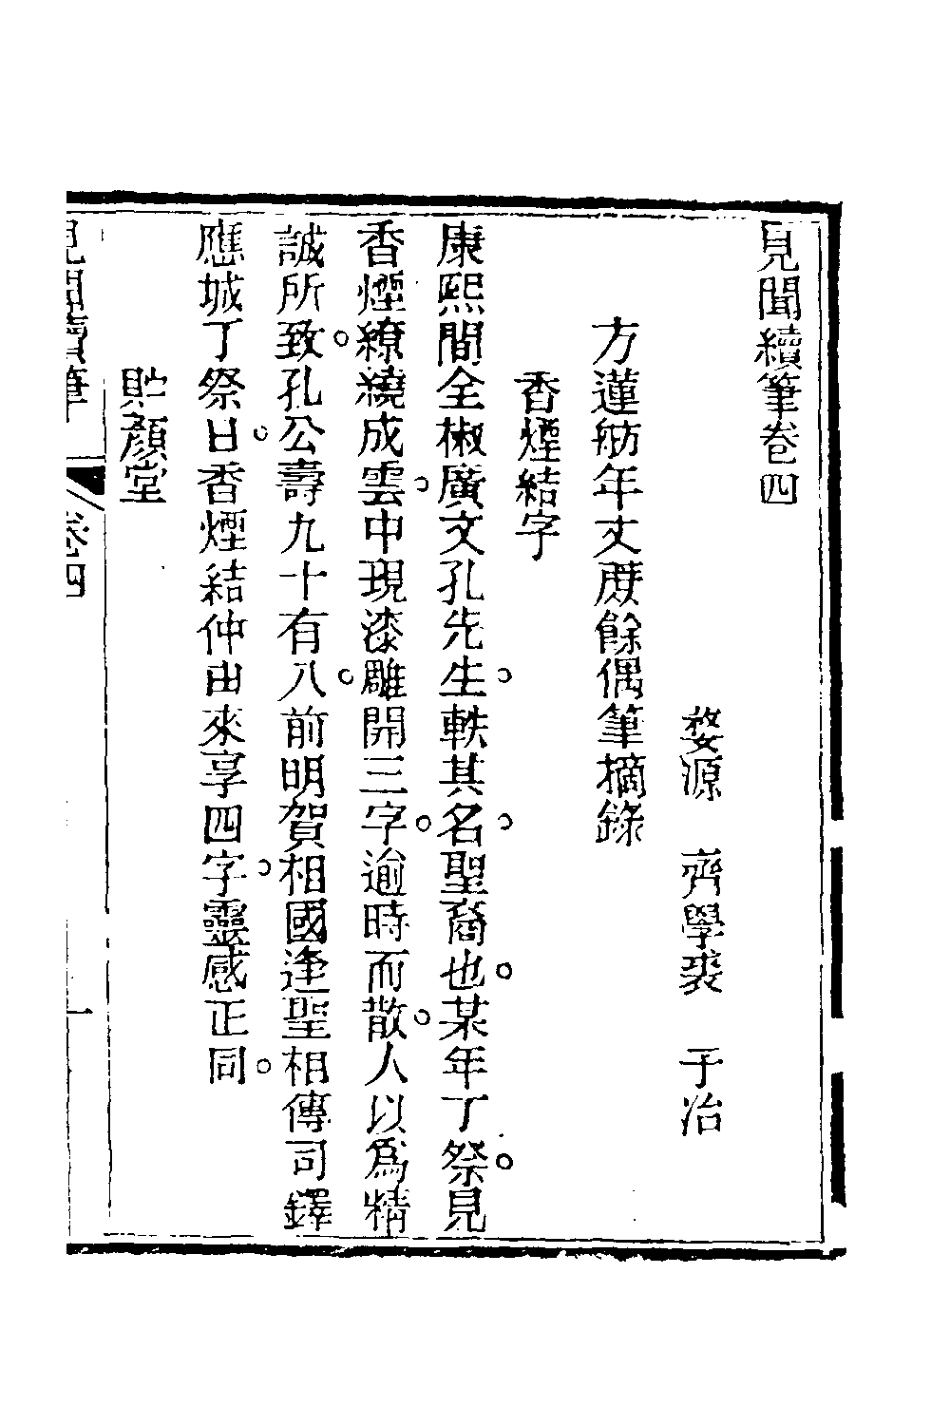 見聞續筆卷四
婺源　齊學裘　于冶
方蓮舫年丈蔗餘偶筆摘錄
香煙結字
康熙間全椒廣文孔先生。軼其名。聖裔也。某年丁祭。見
香煙繚繞成雲。中現漆雕開三字。逾時而散。人以爲精
誠所致。孔公壽九十有八。前明賀相國逢聖相傳司鐸
應城丁祭日。香煙結仲由來享四字。靈感正同。
貯顏堂
見聞續筆　卷四　一